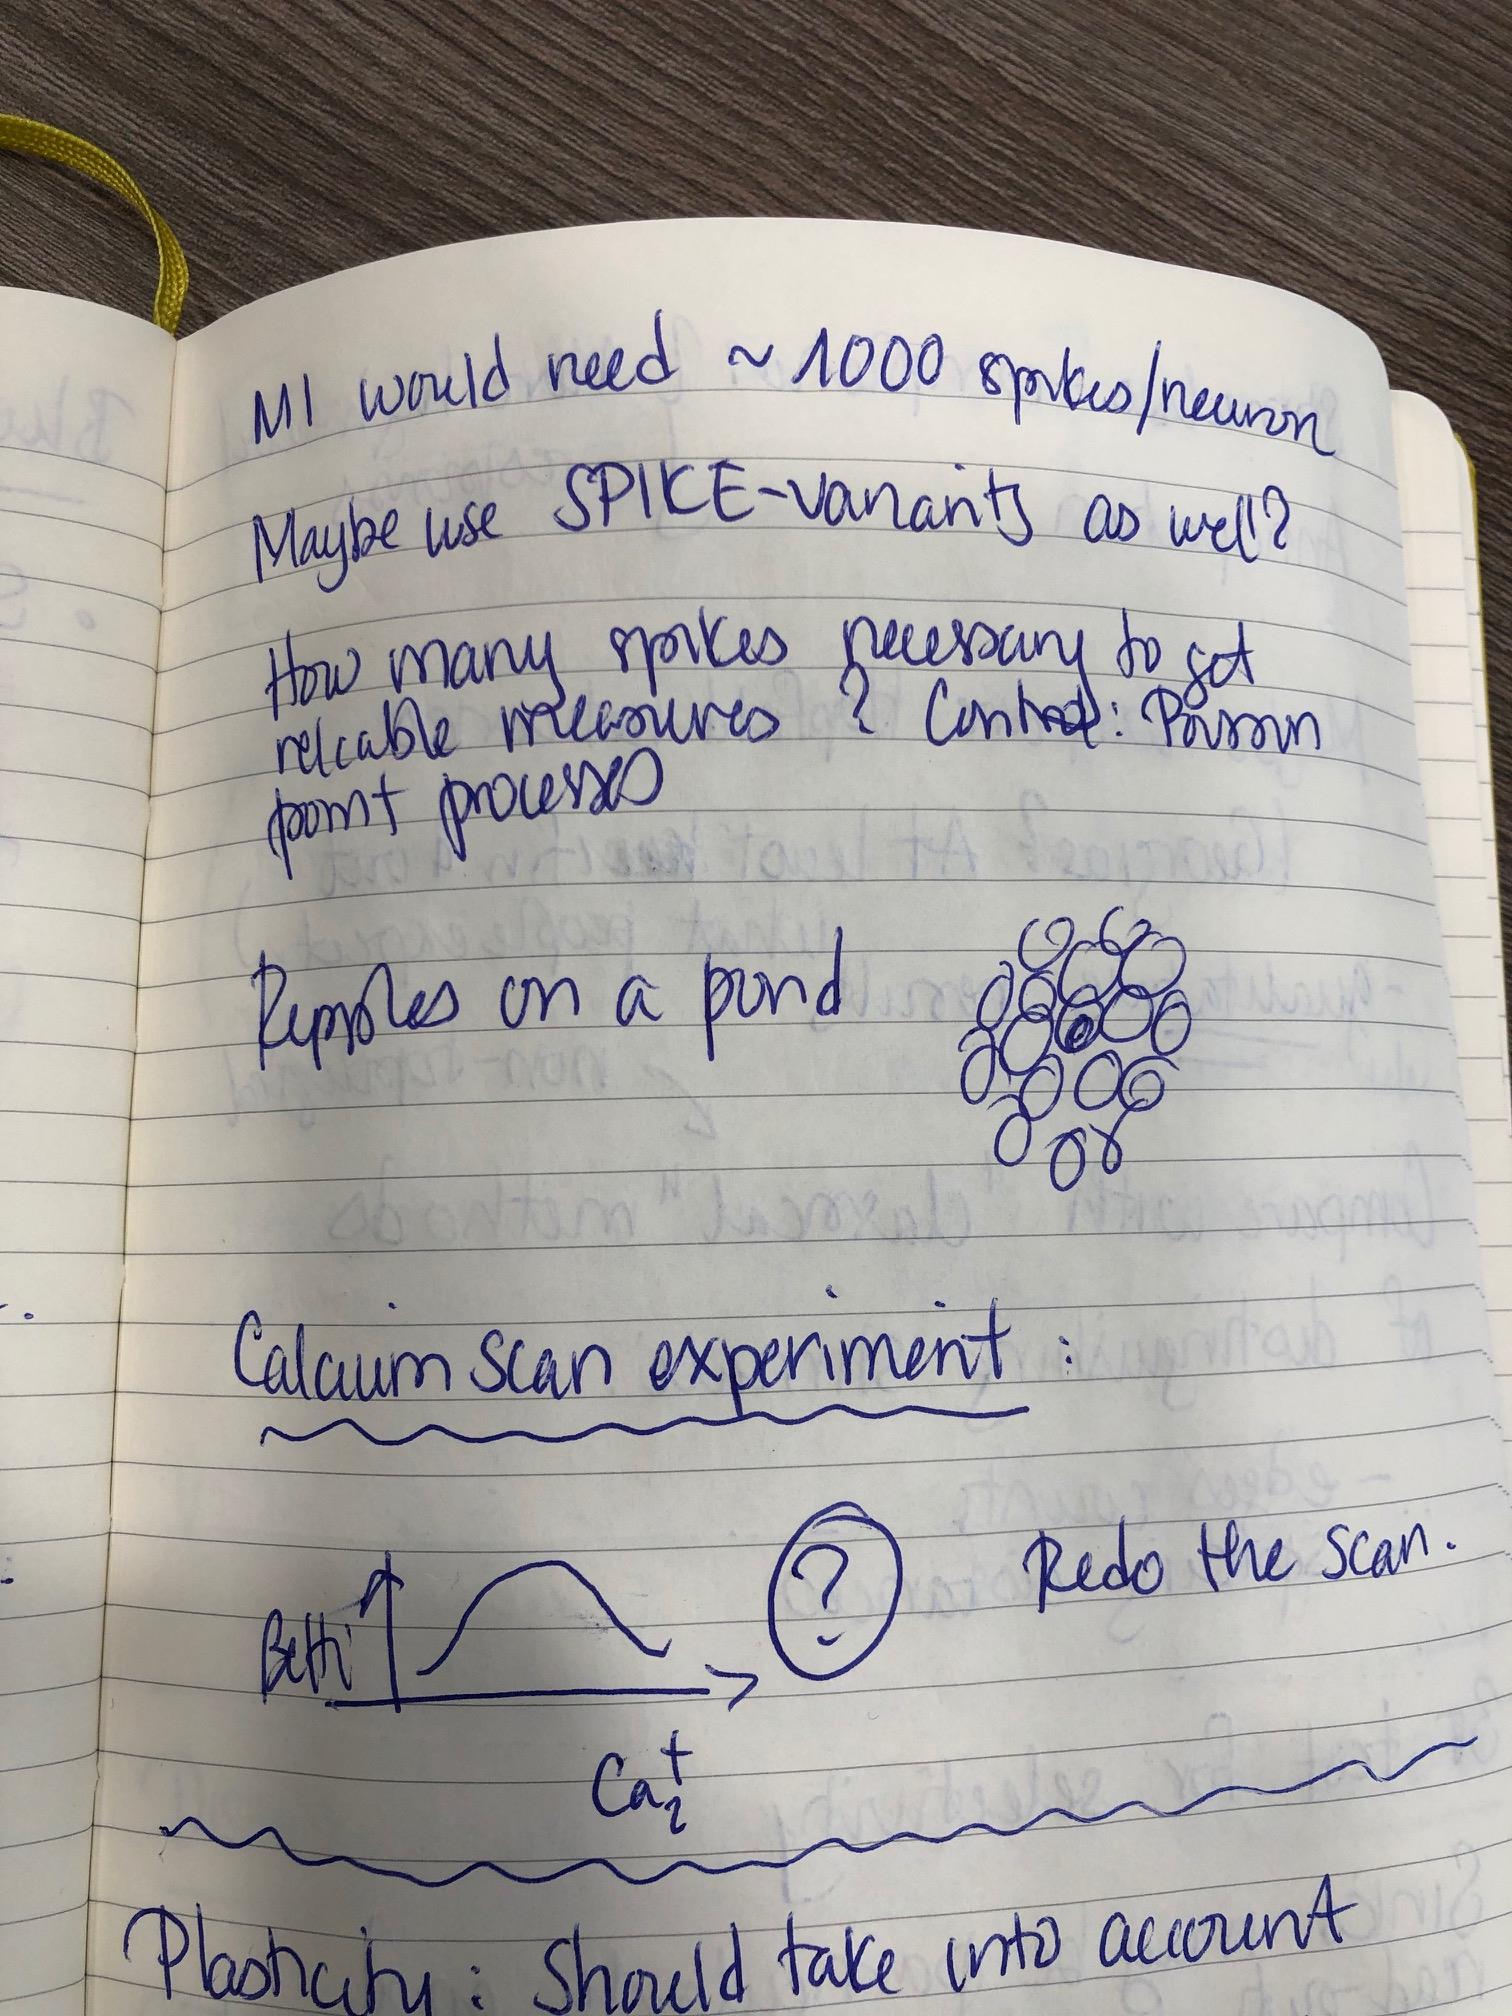 MI would need ~ 1000 spikes/neuron
Maybe use SPIKE-variants as well?
How many spikes necessary to get
reliable measures? Control: Poisson
point processes
Ripples on a pond
Calcium Scan experiment:
?
Redo the Scan.
Ca
Plasticity: Should take into account